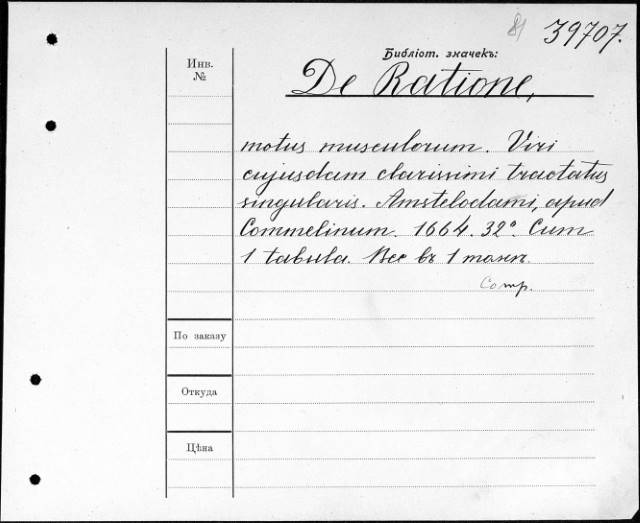 81 39707.
Инв.
№
Бібліот. значекъ:
De Ratione,
motus musculorum. Viri
cujusdam clarissimi tractatus
singularis. Amstelodami, apud
Commelinum. 1664. 32°. Cum
1 tabula. Все въ 1 томѣ.
По заказу
Откуда
Цѣна